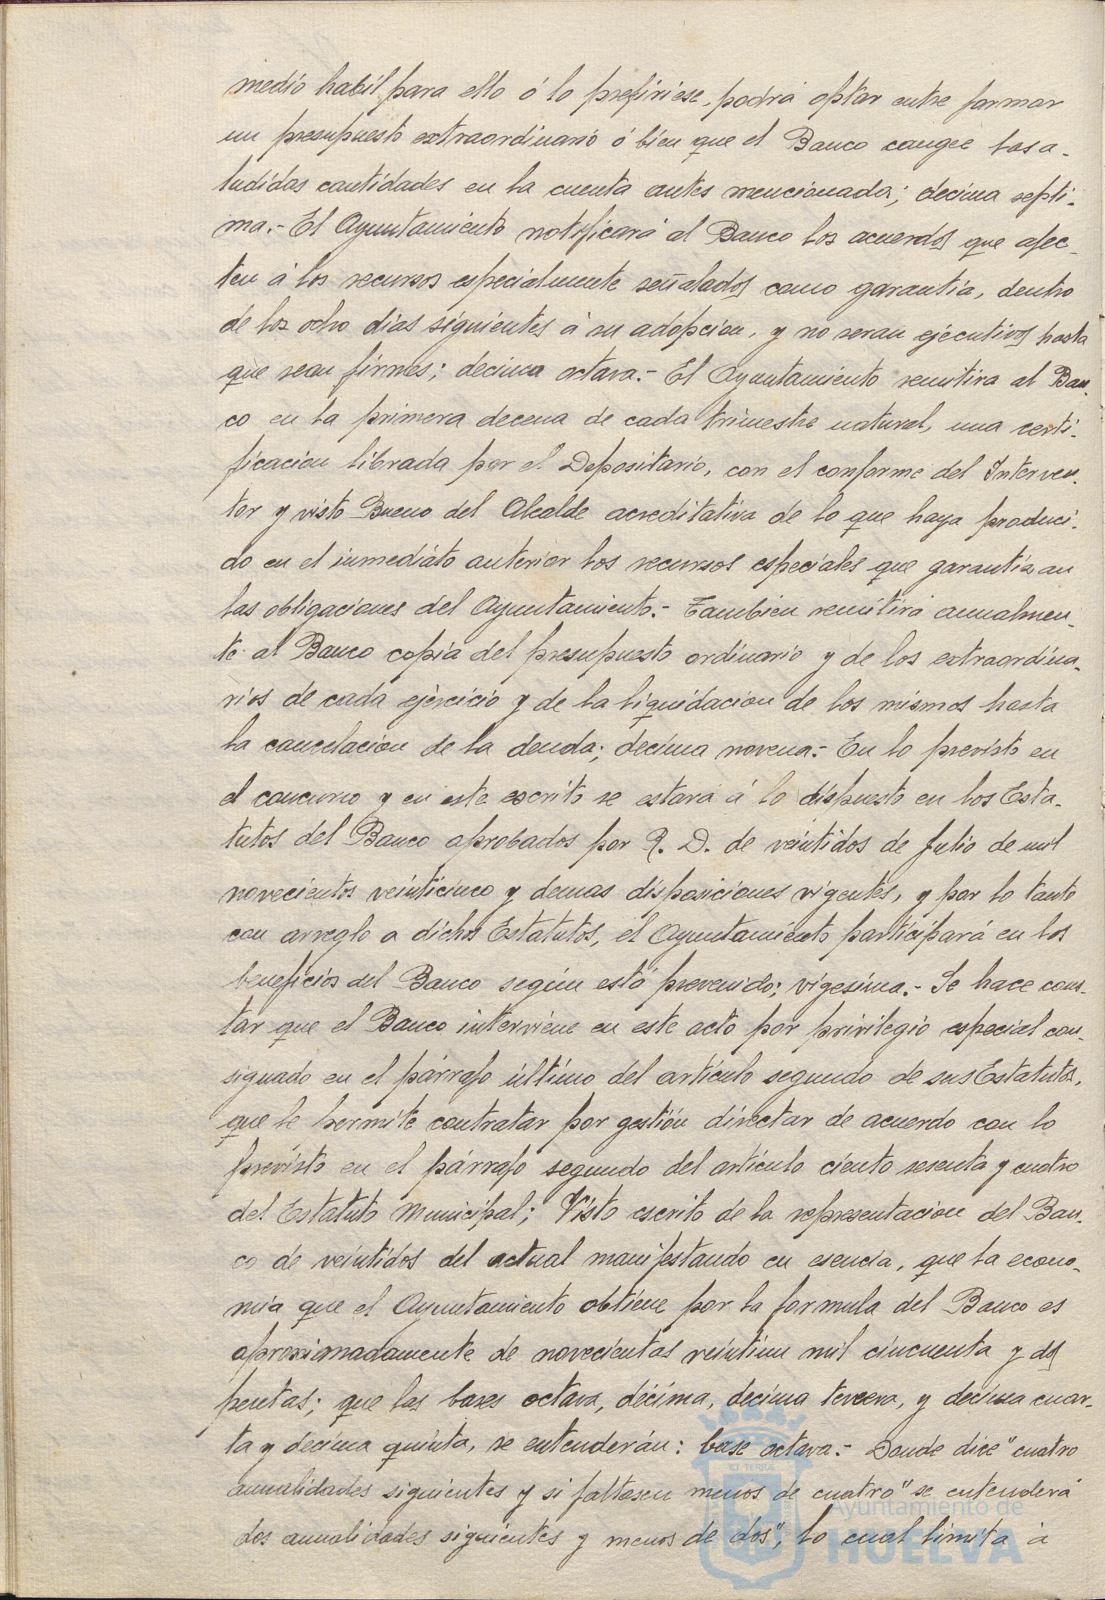 medio habil para ello ó lo prefiriese, podrá optar entre formar
un presupuesto extraordinario ó bien que el Banco cargue las a-
ludidas cantidades en la cuenta antes mencionada; decima septi-
ma.- El Ayuntamiento notificará al Banco los acuerdos que afec-
ten á los recursos especialmente señalados como garantia, dentro
de los ocho dias siguientes á su adopcion, y no seran ejecutivos hasta
que sean firmes; decima octava.- El Ayuntamiento remitira al Ban-
co en la primera decena de cada trimestre natural, una certi-
ficacion librada por el Depositario, con el conforme del Interven-
tor y visto Bueno del Alcalde acreditativa de lo que haya produci-
do en el inmediato anterior los recursos especiales que garantizan
las obligaciones del Ayuntamiento.- Tambien remitirá anualmen-
te al Banco copia del presupuesto ordinario y de los extraordina-
rios de cada ejercicio y de la liquidacion de los mismos hasta
la cancelacion de la deuda; decima novena.- En lo previsto en
el concurso y en este escrito se estara á lo dispuesto en los Esta-
tutos del Banco aprobados por R. D. de veintidos de Julio de mil
novecientos veinticinco y demas disposiciones vigentes, y por lo tanto
con arreglo a dichos Estatutos, el Ayuntamiento participará en los
beneficios del Banco según está prevenido; vigesima.- Se hace cons-
tar que el Banco interviene en este acto por privilegio especial con-
signado en el párrafo último del artículo segundo de sus Estatutos,
que le permite contratar por gestión directar de acuerdo con lo
previsto en el párrafo segundo del artículo ciento sesenta y cuatro
del Estatuto Municipal; Visto escrito de la representacion del Ban-
co de veintidos del actual manifestando en esencia, que la econo-
mia que el Ayuntamiento obtiene por la formula del Banco es
aproximadamente de novecientas veintiun mil cincuenta y dos
pesetas; que las bases octava, décima, decima tercera, y decima cuar-
ta y decima quinta, se entenderán: base octava.- Donde dice "cuatro
anualidades siguientes y si faltasen menos de cuatro" se entenderá
dos anualidades siguientes y menos de dos", lo cual limita á
Ayuntamiento de
HUELVA